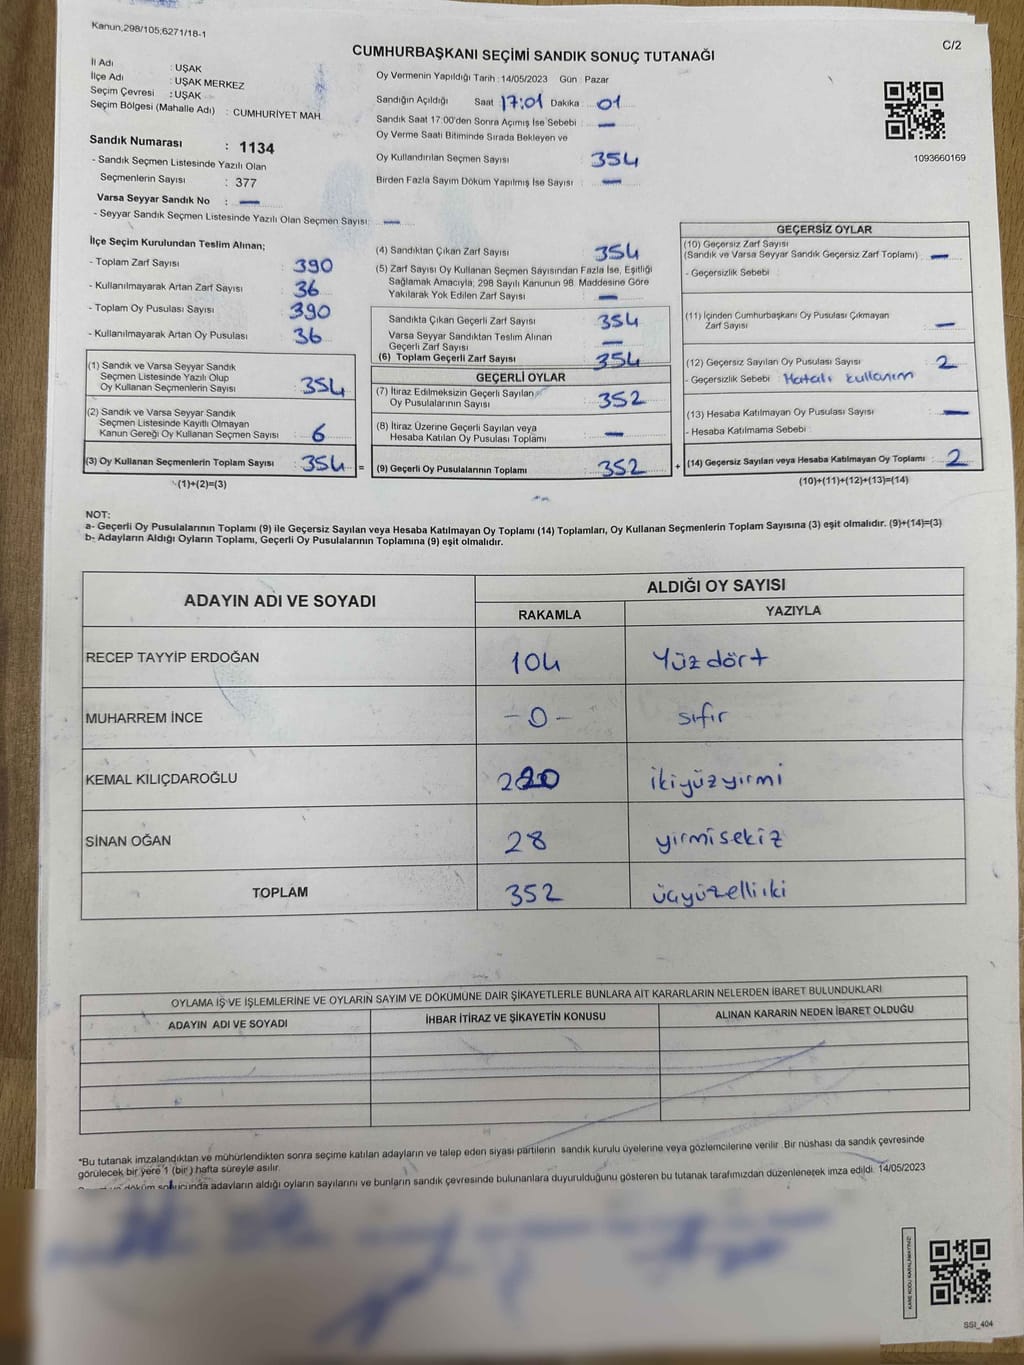 Kanun,298/105,6271/18-1
C/2
CUMHURBAŞKANI SEÇİMİ SANDIK SONUÇ TUTANAĞI
İl Adı : UŞAK
İlçe Adı : UŞAK MERKEZ
Seçim Çevresi : UŞAK
Seçim Bölgesi (Mahalle Adı) : CUMHURİYET MAH.
Sandık Numarası : 1134
- Sandık Seçmen Listesinde Yazılı Olan
Seçmenlerin Sayısı : 377
Varsa Seyyar Sandık No : —
- Seyyar Sandık Seçmen Listesinde Yazılı Olan Seçmen Sayısı: —
Oy Vermenin Yapıldığı Tarih : 14/05/2023 Gün : Pazar
Sandığın Açıldığı Saat 17:01 Dakika 01
Sandık Saat 17:00'den Sonra Açımış İse Sebebi : —
Oy Verme Saati Bitiminde Sırada Bekleyen ve
Oy Kullandırılan Seçmen Sayısı : 354
Birden Fazla Sayım Döküm Yapılmış İse Sayısı : —
1093660169
İlçe Seçim Kurulundan Teslim Alınan;
- Toplam Zarf Sayısı : 390
- Kullanılmayarak Artan Zarf Sayısı : 36
- Toplam Oy Pusulası Sayısı : 390
- Kullanılmayarak Artan Oy Pusulası : 36
(1) Sandık ve Varsa Seyyar Sandık
Seçmen Listesinde Yazılı Olup
Oy Kullanan Seçmenlerin Sayısı : 354
(2) Sandık ve Varsa Seyyar Sandık
Seçmen Listesinde Kayıtlı Olmayan
Kanun Gereği Oy Kullanan Seçmen Sayısı : 6
(3) Oy Kullanan Seçmenlerin Toplam Sayısı : 354 =
(1)+(2)=(3)
(4) Sandıktan Çıkan Zarf Sayısı : 354
(5) Zarf Sayısı Oy Kullanan Seçmen Sayısından Fazla İse, Eşitliği
Sağlamak Amacıyla; 298 Sayılı Kanunun 98. Maddesine Göre
Yakılarak Yok Edilen Zarf Sayısı : —
Sandıkta Çıkan Geçerli Zarf Sayısı : 354
Varsa Seyyar Sandıktan Teslim Alınan
Geçerli Zarf Sayısı : —
(6) Toplam Geçerli Zarf Sayısı : 354
GEÇERLİ OYLAR
(7) İtiraz Edilmeksizin Geçerli Sayılan
Oy Pusulalarının Sayısı : 352
(8) İtiraz Üzerine Geçerli Sayılan veya
Hesaba Katılan Oy Pusulası Toplamı : —
(9) Geçerli Oy Pusulalarının Toplamı : 352 +
GEÇERSİZ OYLAR
(10) Geçersiz Zarf Sayısı
(Sandık ve Varsa Seyyar Sandık Geçersiz Zarf Toplamı) : —
- Geçersizlik Sebebi :
(11) İçinden Cumhurbaşkanı Oy Pusulası Çıkmayan
Zarf Sayısı : —
(12) Geçersiz Sayılan Oy Pusulası Sayısı : 2
- Geçersizlik Sebebi : Hatalı kullanım
(13) Hesaba Katılmayan Oy Pusulası Sayısı : —
- Hesaba Katılmama Sebebi :
(14) Geçersiz Sayılan veya Hesaba Katılmayan Oy Toplamı : 2
(10)+(11)+(12)+(13)=(14)
NOT:
a- Geçerli Oy Pusulalarının Toplamı (9) ile Geçersiz Sayılan veya Hesaba Katılmayan Oy Toplamı (14) Toplamları, Oy Kullanan Seçmenlerin Toplam Sayısına (3) eşit olmalıdır. (9)+(14)=(3)
b- Adayların Aldığı Oyların Toplamı, Geçerli Oy Pusulalarının Toplamına (9) eşit olmalıdır.
ADAYIN ADI VE SOYADI ALDIĞI OY SAYISI
RAKAMLA YAZIYLA
RECEP TAYYİP ERDOĞAN 104 Yüz dört
MUHARREM İNCE -0- sıfır
KEMAL KILIÇDAROĞLU 220 ikiyüzyirmi
SİNAN OĞAN 28 yirmisekiz
TOPLAM 352 üçyüzelliiki
OYLAMA İŞ VE İŞLEMLERİNE VE OYLARIN SAYIM VE DÖKÜMÜNE DAİR ŞİKAYETLERLE BUNLARA AİT KARARLARIN NELERDEN İBARET BULUNDUKLARI
ADAYIN ADI VE SOYADI İHBAR İTİRAZ VE ŞİKAYETİN KONUSU ALINAN KARARIN NEDEN İBARET OLDUĞU
*Bu tutanak imzalandıktan ve mühürlendikten sonra seçime katılan adayların ve talep eden siyasi partilerin sandık kurulu üyelerine veya gözlemcilerine verilir. Bir nüshası da sandık çevresinde
görülecek bir yere 1 (bir) hafta süreyle asılır.
döküm sonucunda adayların aldığı oyların sayılarını ve bunların sandık çevresinde bulunanlara duyurulduğunu gösteren bu tutanak tarafımızdan düzenlenerek imza edildi. 14/05/2023
KARE KODU KARALAMAYINIZ!
SSI_404